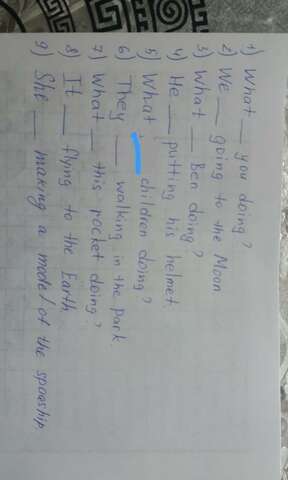 1) What __ you doing?
2) We __ going to the Moon
3) What __ Ben doing?
4) He __ putting his helmet.
5) What __ children doing?
6) They __ walking in the park
7) What __ this rocket doing?
8) It __ flying to the Earth
9) She __ making a model of the spaeship.